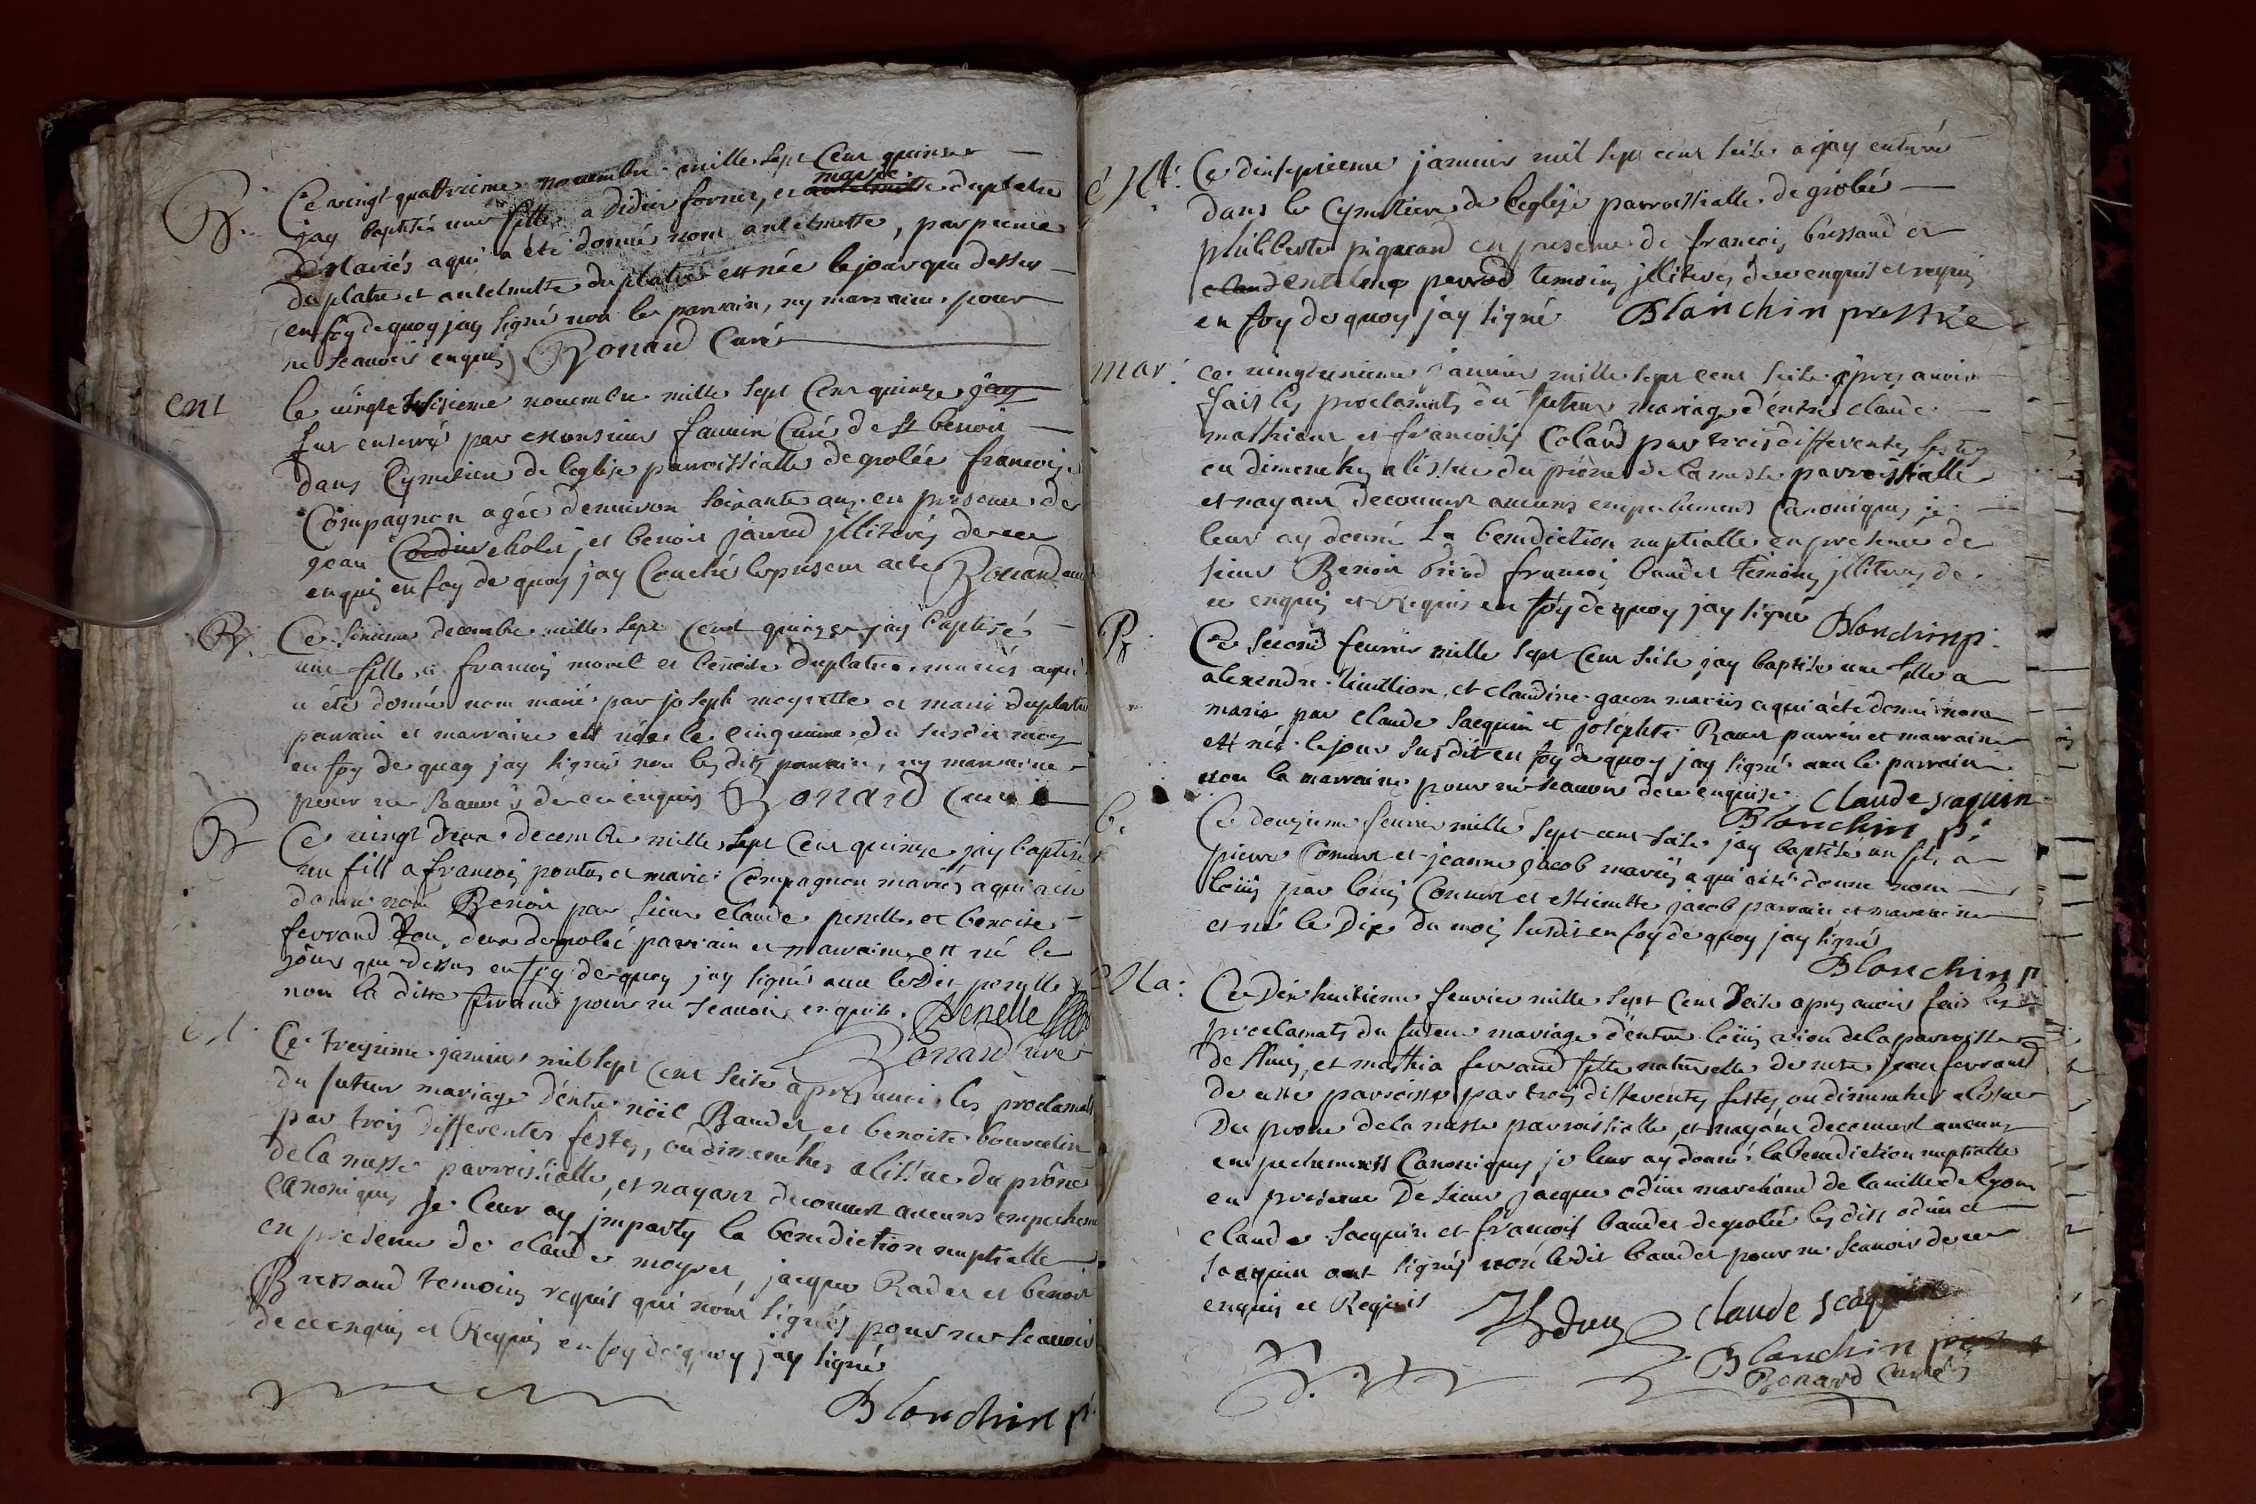 B.
Ce vingt quattrieme novembre mille sept Cent quinze
jay baptisé une fille a didier fornier, et marie duplatre
Mariés a qui a été donné nom antelmette, par pierre
duplatre et antelmette duplatre est née le jour que dessus
en foy de quoy jay signé non le parrain, ny marraine pour
ne scavoir enquis Bonard Curé
ent
le vingt troisieme novembre mille sept Cent quinze jay
fut enterré par Monsieur Curé de st benoit
dans Cymetiere de leglise parroissialle de grolée francoise
Compagnon agée denviron soixante ans en presence de
jean cholet, et benoit jaurd jlliterés de ce
enquis en foy de quoy jay Couché le present acte Bonard curé
B.
Ce sixieme decembre mille sept Cent quinze jay baptisé
une fille a francois morel et benoite duplatre mariés a qui
a été donné nom marie par joseph moyrette et marie duplatre
parrain et marraine est née le cinquieme du susdit moy
en foy de quoy jay signé non lesdits parrain, ny marraine
pour ne scavoir de ce enquis Bonard Curé
B
Ce vingt deux decembre mille sept Cent quinze jay baptisé
un fill a francois pontus et marie Compagnon mariés a qui a été
donné nom Benoit par sieur claude penelle et benoite
ferrand tou deux de grolée parrain et marraine est né le
jour que dessus en foy de quoy jay signé avec ledit penelle
non la ditte ferrand pour ne scavoir enquise. Penelle
Bonard curé
Ce treizieme janvier mil sept Cent seize apres avoir les proclamats
du futeur mariage d'entre noël Baudet et benoite bourcelin
par trois differentes festes, ou dimenches a lissue du prône
de la messe parroissialle, et nayant decouvert aucuns empechem
canoniques je leur ay jmparty la benediction nuptialle
en presence de claude moyret, jacque Radet et benoit
Bressand temoins requis qui n'ont signés pour ne scavoir
de ce enquis et Requis en foy de quoy jay signé
Blanchin p.
Ce dixseptieme janvier mil sept cent seize a jay enterré
dans le Cymetiere de leglise parroissialle de grolée
philiberte piquand en presence de francois bressand et
perrod temoins jlliteres de ce enquis et requis
en foy de quoy jay signé Blanchin prestre
mar.
ce vingtunieme janvier mille sept cent seize apres avoir
fait les proclamats du futeur mariage d'entre claude
mathieux et francoise Colard par trois differentes festes
ou dimenches a lissue du prône de la messe parroissialle
et nayant decouvert aucuns empechements Canoniques je
leur ay donné la benediction nuptialle en presence de
sieur Benoit briod francois baudet temoins jlliteres de
ce enquis et Requis en foy de quoy jay signé
Blanchin p.
B
Ce second feuvrier mille sept Cent seize jay baptisé une fille a
alexendre tuillion, et claudine gacon mariés a qui a été donné nom
marie par claude Jacquin et josephte Ravet parrain et marraine
est née le jour susdit en foy de quoy jay signé avec le parrain
non la marraine pour ne scavoir de ce enquise. Claude Jaquin
Blanchin p.
b.
Ce douzieme feuvrier mille sept cent seize jay baptisé un fils a
pierre Connert et jeanne Jacob mariés a qui a été donné nom
louis par louis Connert et estienette jacob parrain et marraine
et né le Dix du mois susdit en foy de quoy jay signé
Blanchin p.
Ma:
Ce Dix huitieme feuvrier mille sept Cent seize apres avoir fait les
proclamats du futeur mariage d'entre louis vion de la parroisse
de Ruis, et mathia ferrand fille naturelle de mre jean ferrand
de cette parroisse par trois differentes festes ou dimenches a lissue
Du prone de la messe parroissialle, et nayant decouvert aucuns
empechements Canoniques je leur ay donné la benediction nuptialle
en presence De sieur jacque odin marchand de la ville de Lyon
claude Jacquin et francois baudet de grolée les dits odin et
Jacquin ont signés non ledit baudet pour ne scavoir de ce
enquis et Requis
Claude Jaquin
Blanchin
Bonard Curé